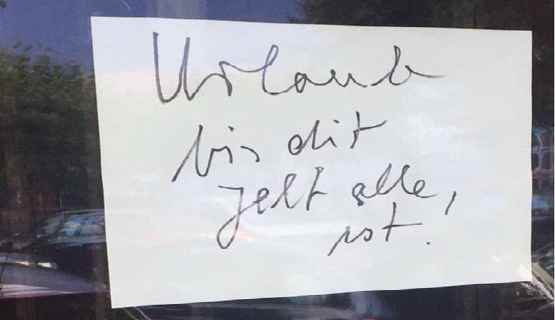 Urlaub
bis dit
jelt alle,
ist.